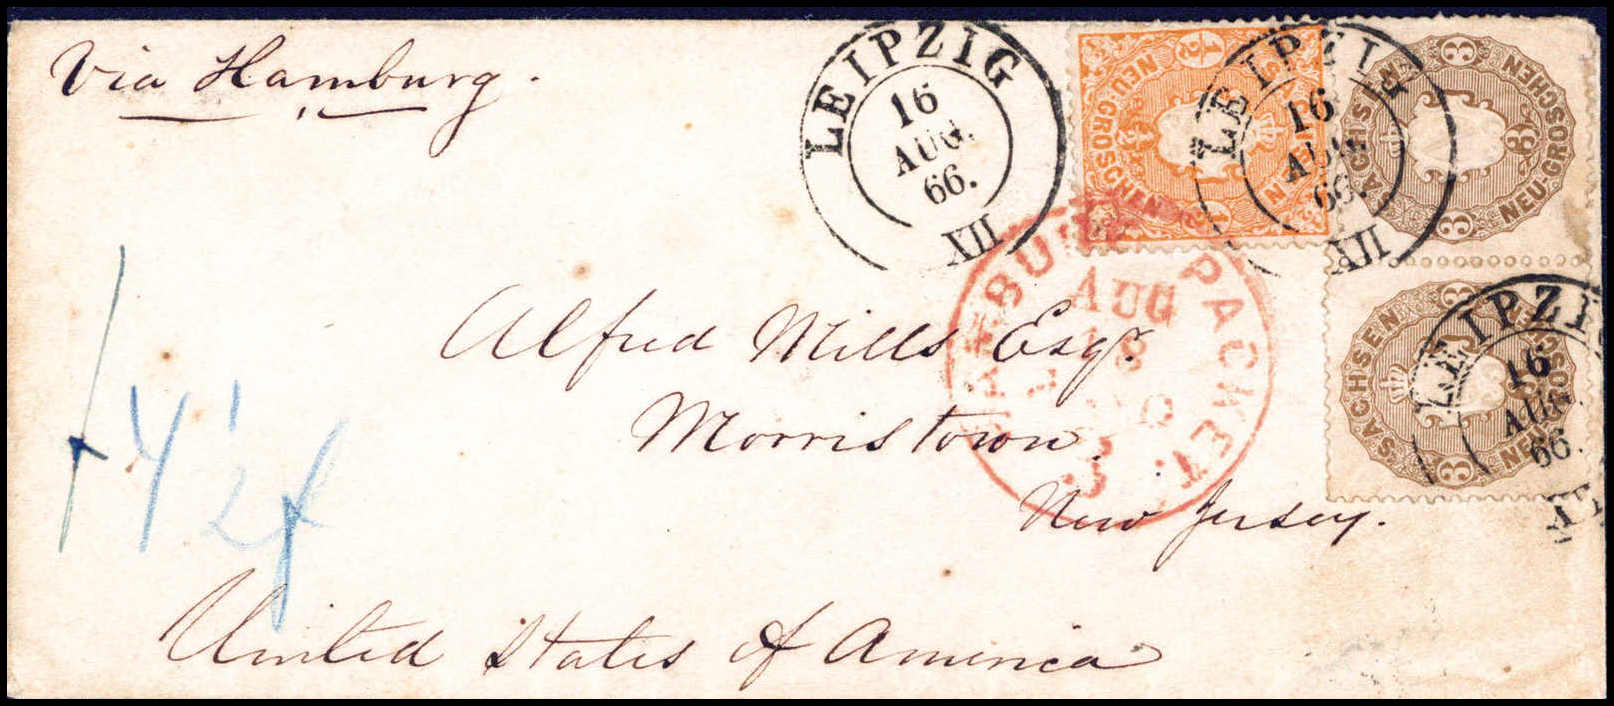 Via Hamburg.
LEIPZIG
16
AUG.
66.
XII
½
NEU-GROSCHEN
½
LEIPZIG
16
AUG.
66.
XII
3
SACHSEN
3
NEU-GROSCHEN
3
AUG
18
PACKET
3
3
SACHSEN
3
3
LEIPZIG
16
AUG.
66.
XII
Alfred Mills Esqr.
Morristown.
New Jersey.
4½f
United States of America